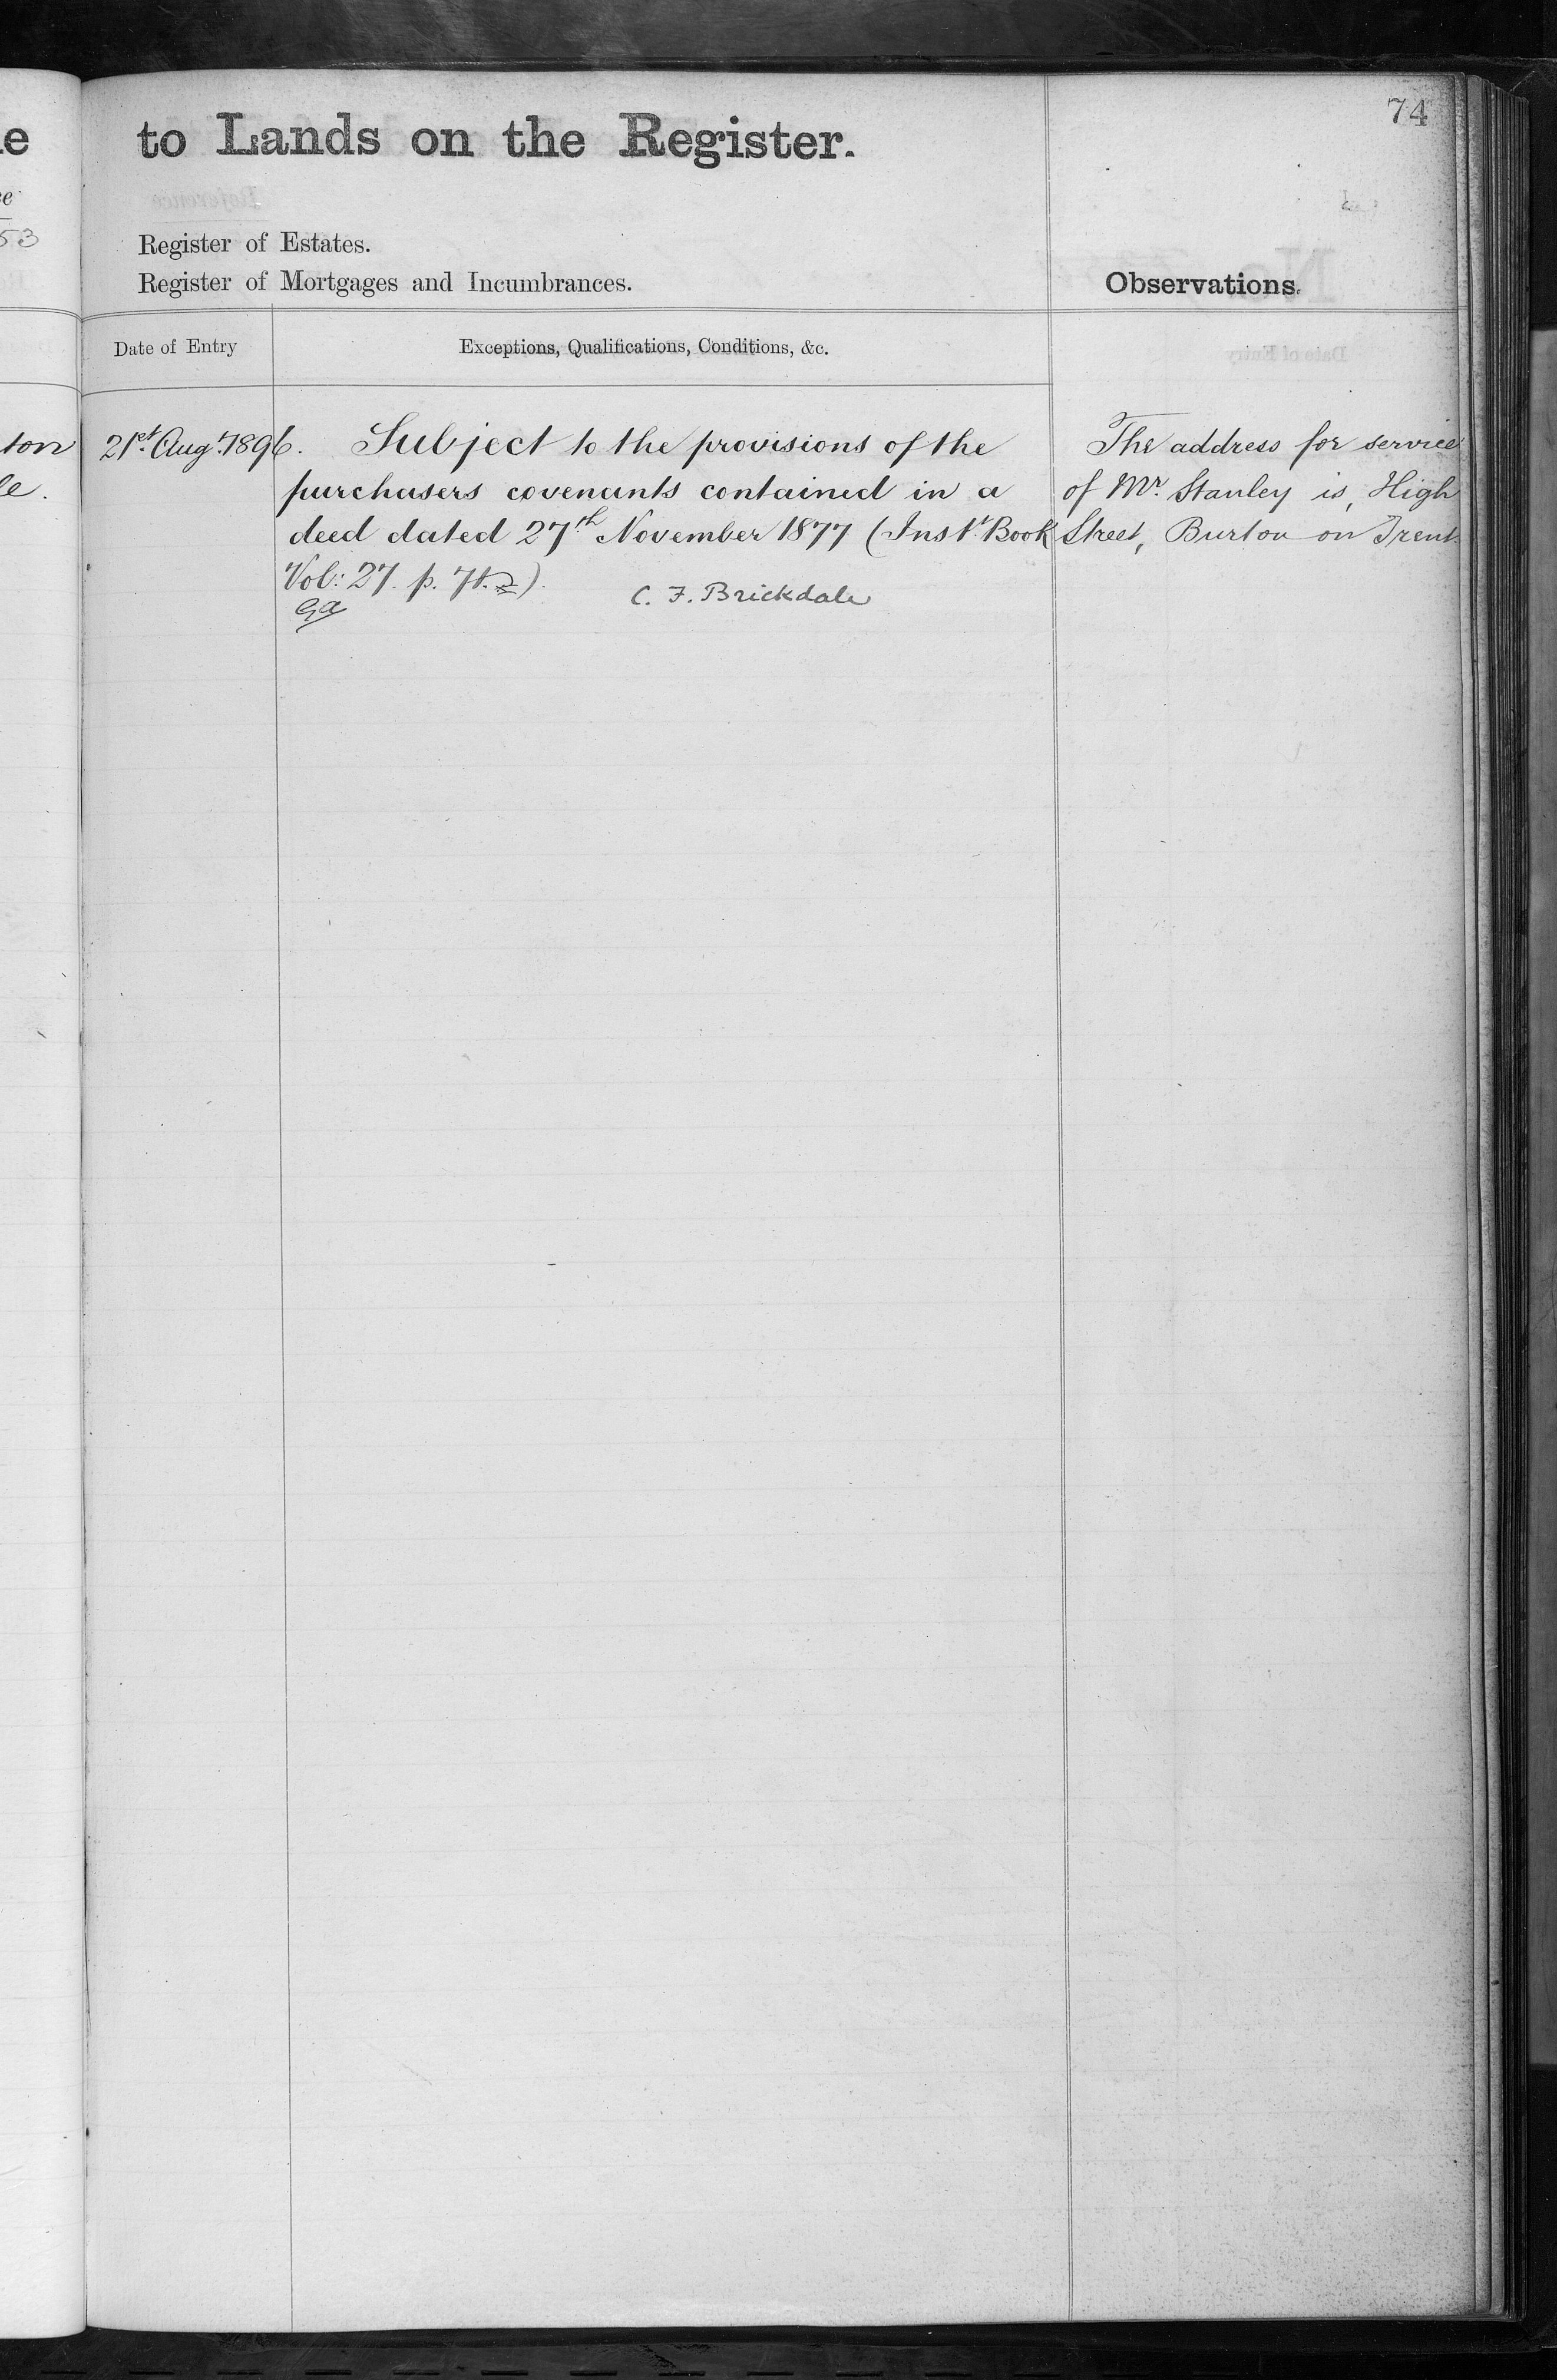 74
to Lands on the Register.
Register of Estates.
Register of Mortgages and Incumbrances.
Observations.
Date of Entry
Exceptions, Qualifications, Conditions, &c.
21st. Augt. 1896. Subject to the provisions of the
purchasers covenants contained in a
deed dated 27th November 1877 (Inst. Book
Vol: 27. p.
C. F. Brickdale
The address for service
of Mr. Stanley is, High
Street, Burton on Trent.
ton
53